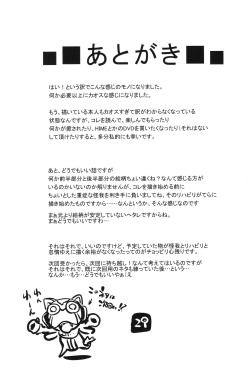 ■■あとがき■■
はい！という訳でこんな感じのモノになりました。
何か必要以上にカオスな感じになりました。
もう、描いている本人もカオスすぎて訳がわからなくなっている
状態なんですが、コレを読んで、楽しんでもらったり
何かが癒されたり、HIMEとかのDVDを買いたくなったり(それはない
して頂けたりすると、多分私的にも幸いです。
あと、どうでもいい話ですが
何か前半部分と後半部分の絵柄ちょい違くね？なんて感じる方が
いるのかいないのか解りませんが、コレを描き始める前に
ちょいとした重症な怪我を利き手に負いまして、そのリハビリがてらに
描き始めたものですから……なんというか、そんな感じなのです
まぁ元より絵柄が安定していないヘタレですからね。
まぁどうでもいいですわ…
それはそれで、いいのですけど、予定していた物が怪我とリハビリと
怠惰ゆえに描く余裕がなくなったってのがチョッピリ心残りです。
次回受かったら、次回に持ち越し！なんて考えてはいるのですが
それはそれで、既に次回用のネタも練っていた後…という…
なんか…もう…どうでもいいやぁ(え